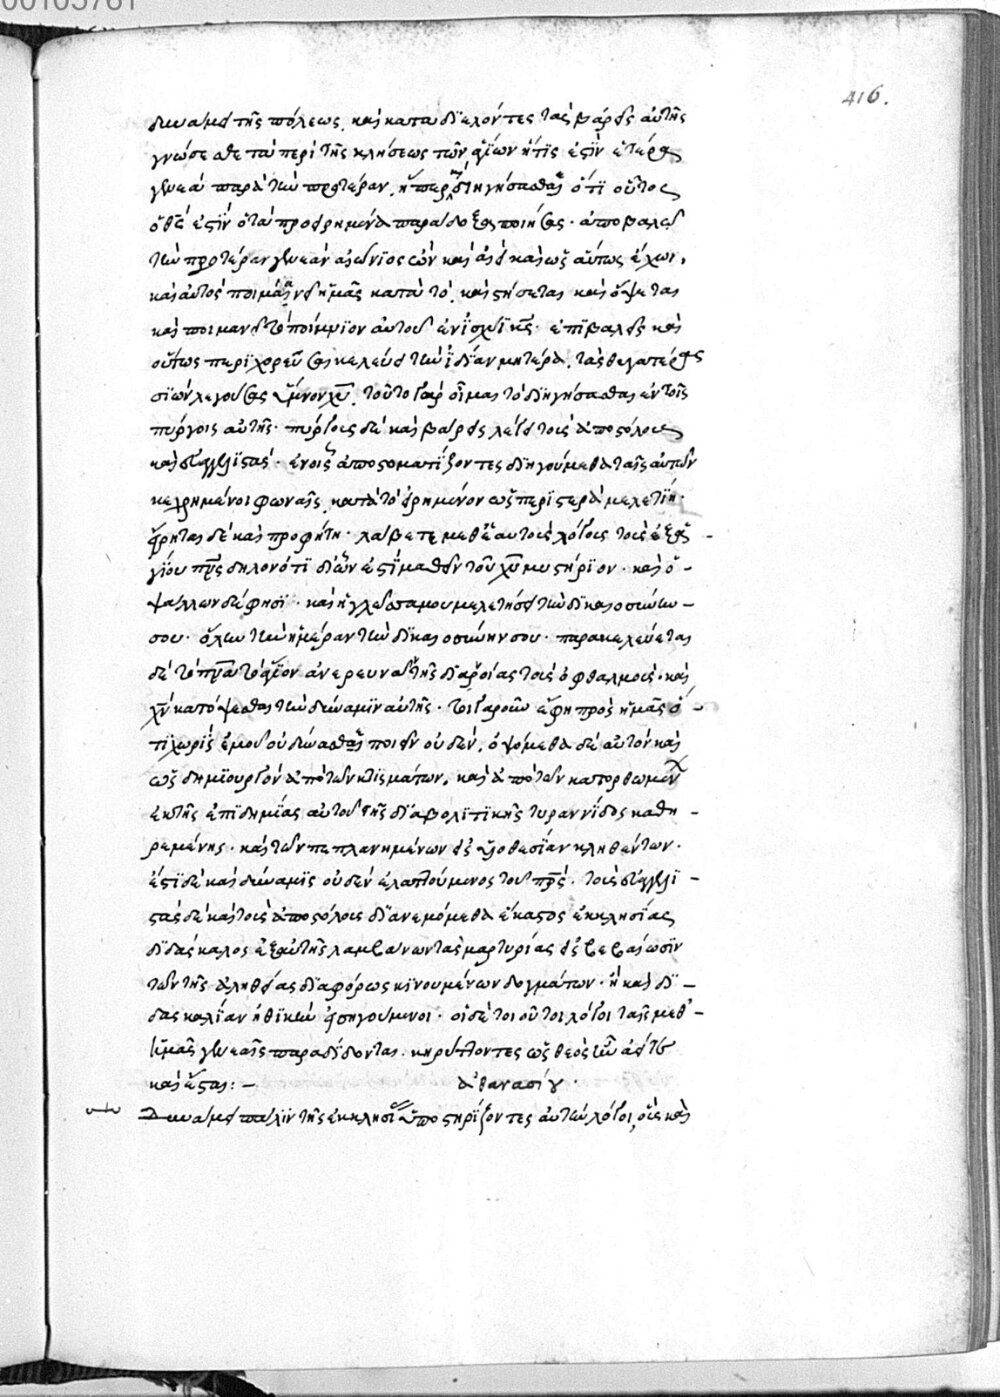 00105781
416.
δυνάμει τῆς πόλεως, καὶ καταδιελόντες τὰς βάρεις αὐτῆς
γνώσεσθε τὰ περὶ τῆς κλήσεως τῶν ἁγίων ἥτις ἐστὶν ἑτέρα
γενεὰ παρὰ τὴν προτέραν, ᾗπερ διηγήσασθαι ὅτι οὗτος
ὁ θεός ἐστιν ὁ τὰ προειρημένα παραδόξως ποιήσας. ἀποβαλεῖ
τὴν προτέραν γενεὰν αἰώνιος ὢν καὶ ἀεὶ καὶ ὡσαύτως ἔχων,
καὶ αὐτὸς ποιμαίνει ἡμᾶς κατὰ τὸ, καὶ στήσεται καὶ ὄψεται
καὶ ποιμανεῖ τὸ ποίμνιον αὐτοῦ ἐν ἰσχύι κυ. ἐπιβαλεῖς καὶ
οὕτως περιχορεῦσαι κελεύει τὴν ἰδίαν μητέρα, τὰς θυγατέρας
σιὼν λεγούσας ὕμνον χυ. τοῦτο γὰρ οἶμαι τὸ διηγήσασθαι ἐν τοῖς
πύργοις αὐτῆς. πύργους δὲ καὶ βάρεις λέγει τοὺς ἀποστόλους
καὶ εὐαγγελιστάς. ἐν οἷς ἀποστοματίζοντες διηγούμεθα ταῖς αὐτῶν
κεχρημένοι φωναῖς, κατὰ τὸ εἰρημένον ὡς περιστερὰ μελετήσω.
εἴρηται δὲ καὶ προφήτῃ. λάβετε μεθ' ἑαυτοὺς λόγους τοὺς ἐξ ἁ-
γίου πνς δηλονότι δι' ὧν ἐστι μαθεῖν τοῦ χυ μυστήριον. καὶ ὁ
ψάλλων δέ φησι. καὶ ἡ γλῶσσα μου μελετήσει τὴν δικαιοσύνην
σου. ὅλην τὴν ἡμέραν τὴν δικαιοσύνην σου. παρακελεύεται
δὲ τὸ πνα τὸ ἅγιον ἀνερευνᾶν τῆς διανοίας τοὺς ὀφθαλμοὺς. καὶ
χν κατόψεσθαι τὴν δύναμιν αὐτῆς. τί γὰρ οὖν ἔφη πρὸς ἡμᾶς ὅ-
τι χωρὶς ἐμοῦ οὐ δύνασθε ποιεῖν οὐδέν. ὀψόμεθα δὲ αὐτὸν καὶ
ὡς δημιουργὸν ἀπὸ τῶν κτισμάτων. καὶ ἀπὸ τῶν κατορθωμένων
ἐκ τῆς ἐπιδημίας αὐτοῦ τῆς διαβολιτικῆς τυραννίδος καθη-
ρεμένης. καὶ τῶν πεπλανημένων εἰς υἱοθεσίαν κληθέντων.
ἔστι δὲ καὶ δύναμις οὐδὲν ἐλαττούμενος τοῦ πρς. τοὺς εὐαγγελι-
στὰς δὲ καὶ τοὺς ἀποστόλους διανεμόμεθα ἕκαστος ἐκκλησίας
διδάσκαλος ἐξ αὐτῆς λαμβάνων τὰς μαρτυρίας εἰς βεβαίωσιν
τῶν τῆς ἀληθείας διαφόρως κινουμένων δογμάτων. ἢ καὶ δι-
δασκαλίαν ἠθικὴν εἰσηγούμενοι. οἱ δέ τοι οὗτοι λόγοι ταῖς μεθ'
ἡμᾶς γενεαῖς παραδίδονται. κηρύττοντες ὡς θεὸς ὢν ἀεί τε
καὶ ἔσται:– ἀθανασίου.
Δυνάμει πάλιν τῆς ἐκκλησίας ὑποστηρίζοντες αὐτὴν λόγοι, οἷς καὶ